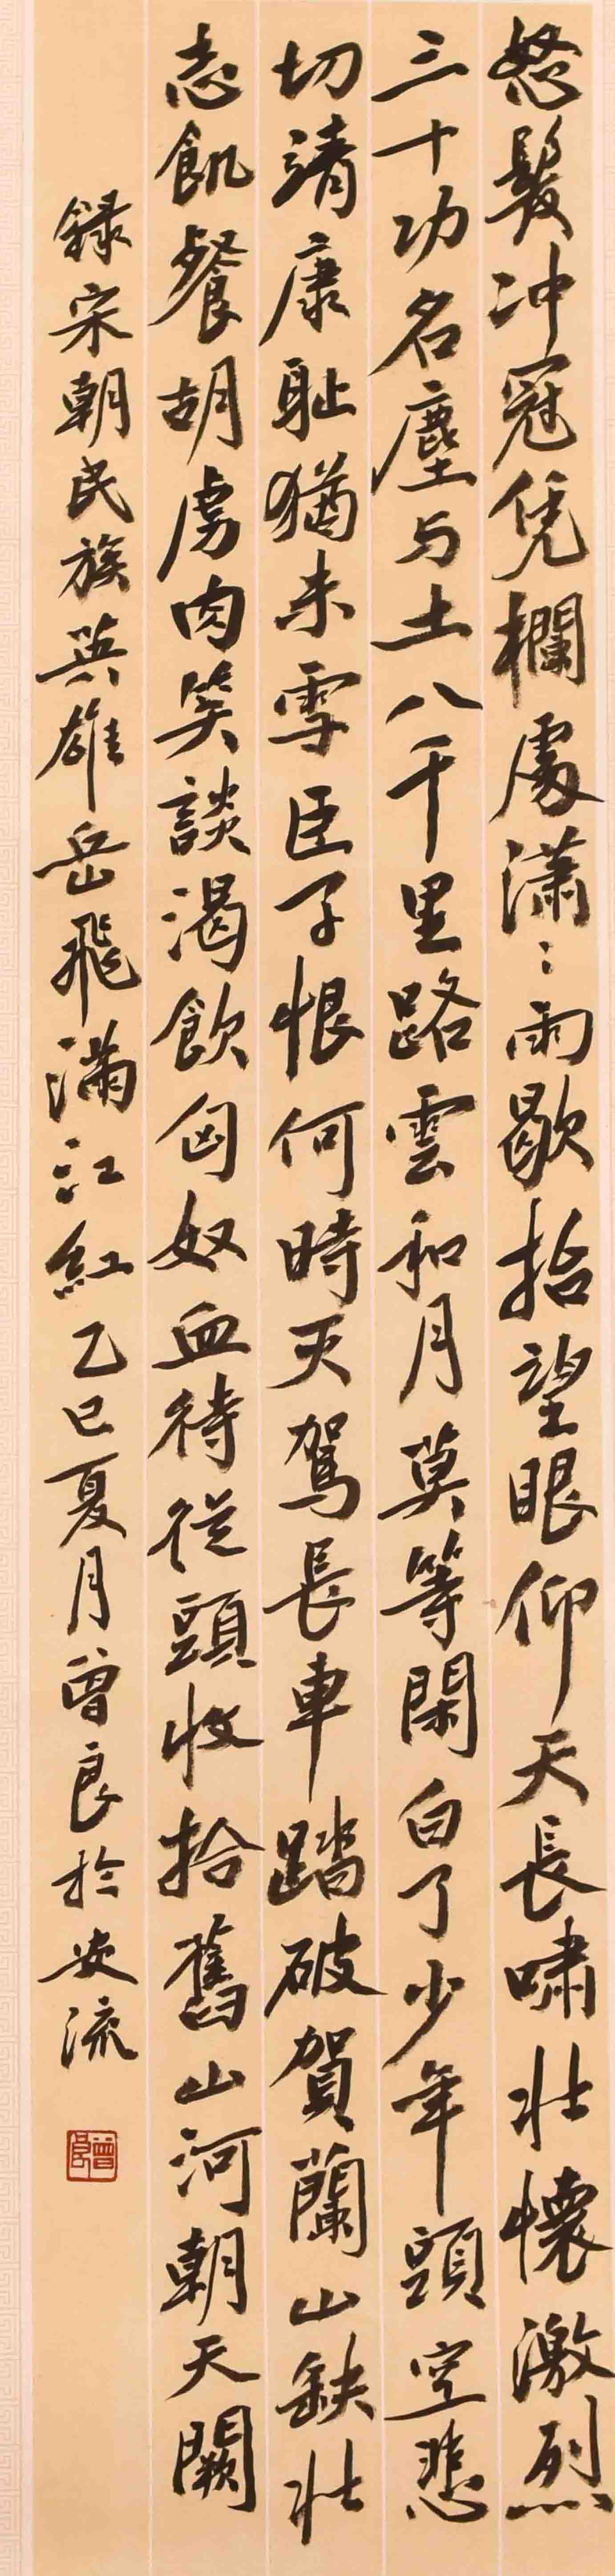 怒髮冲冠凭欄處潇〻雨歇抬望眼仰天長啸壮懷激烈
三十功名塵与土八千里路雲和月莫等閑白了少年頭空悲
切靖康耻猶未雪臣子恨何時灭駕長車踏破賀蘭山缺壮
志飢餐胡虏肉笑談渴飲匈奴血待從頭收拾舊山河朝天闕
録宋朝民族英雄岳飛满江紅乙巳夏月曾良於安流
曾良